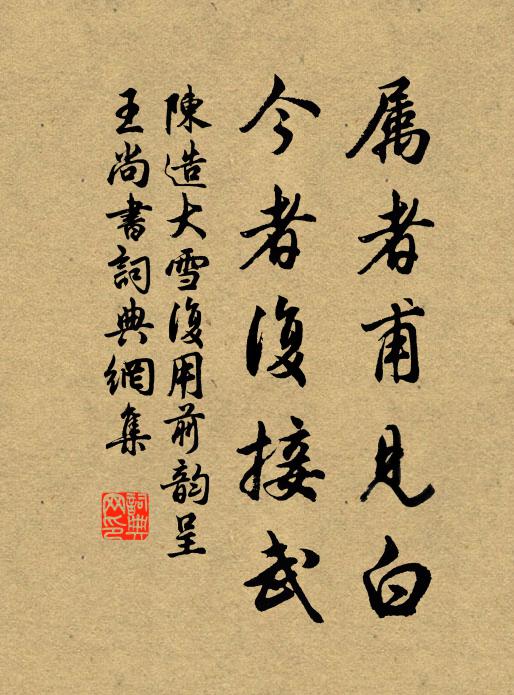 属者甫見白
今者復接武
陳造大雪復用前韵呈
王尚書詞典網集
詞典网印